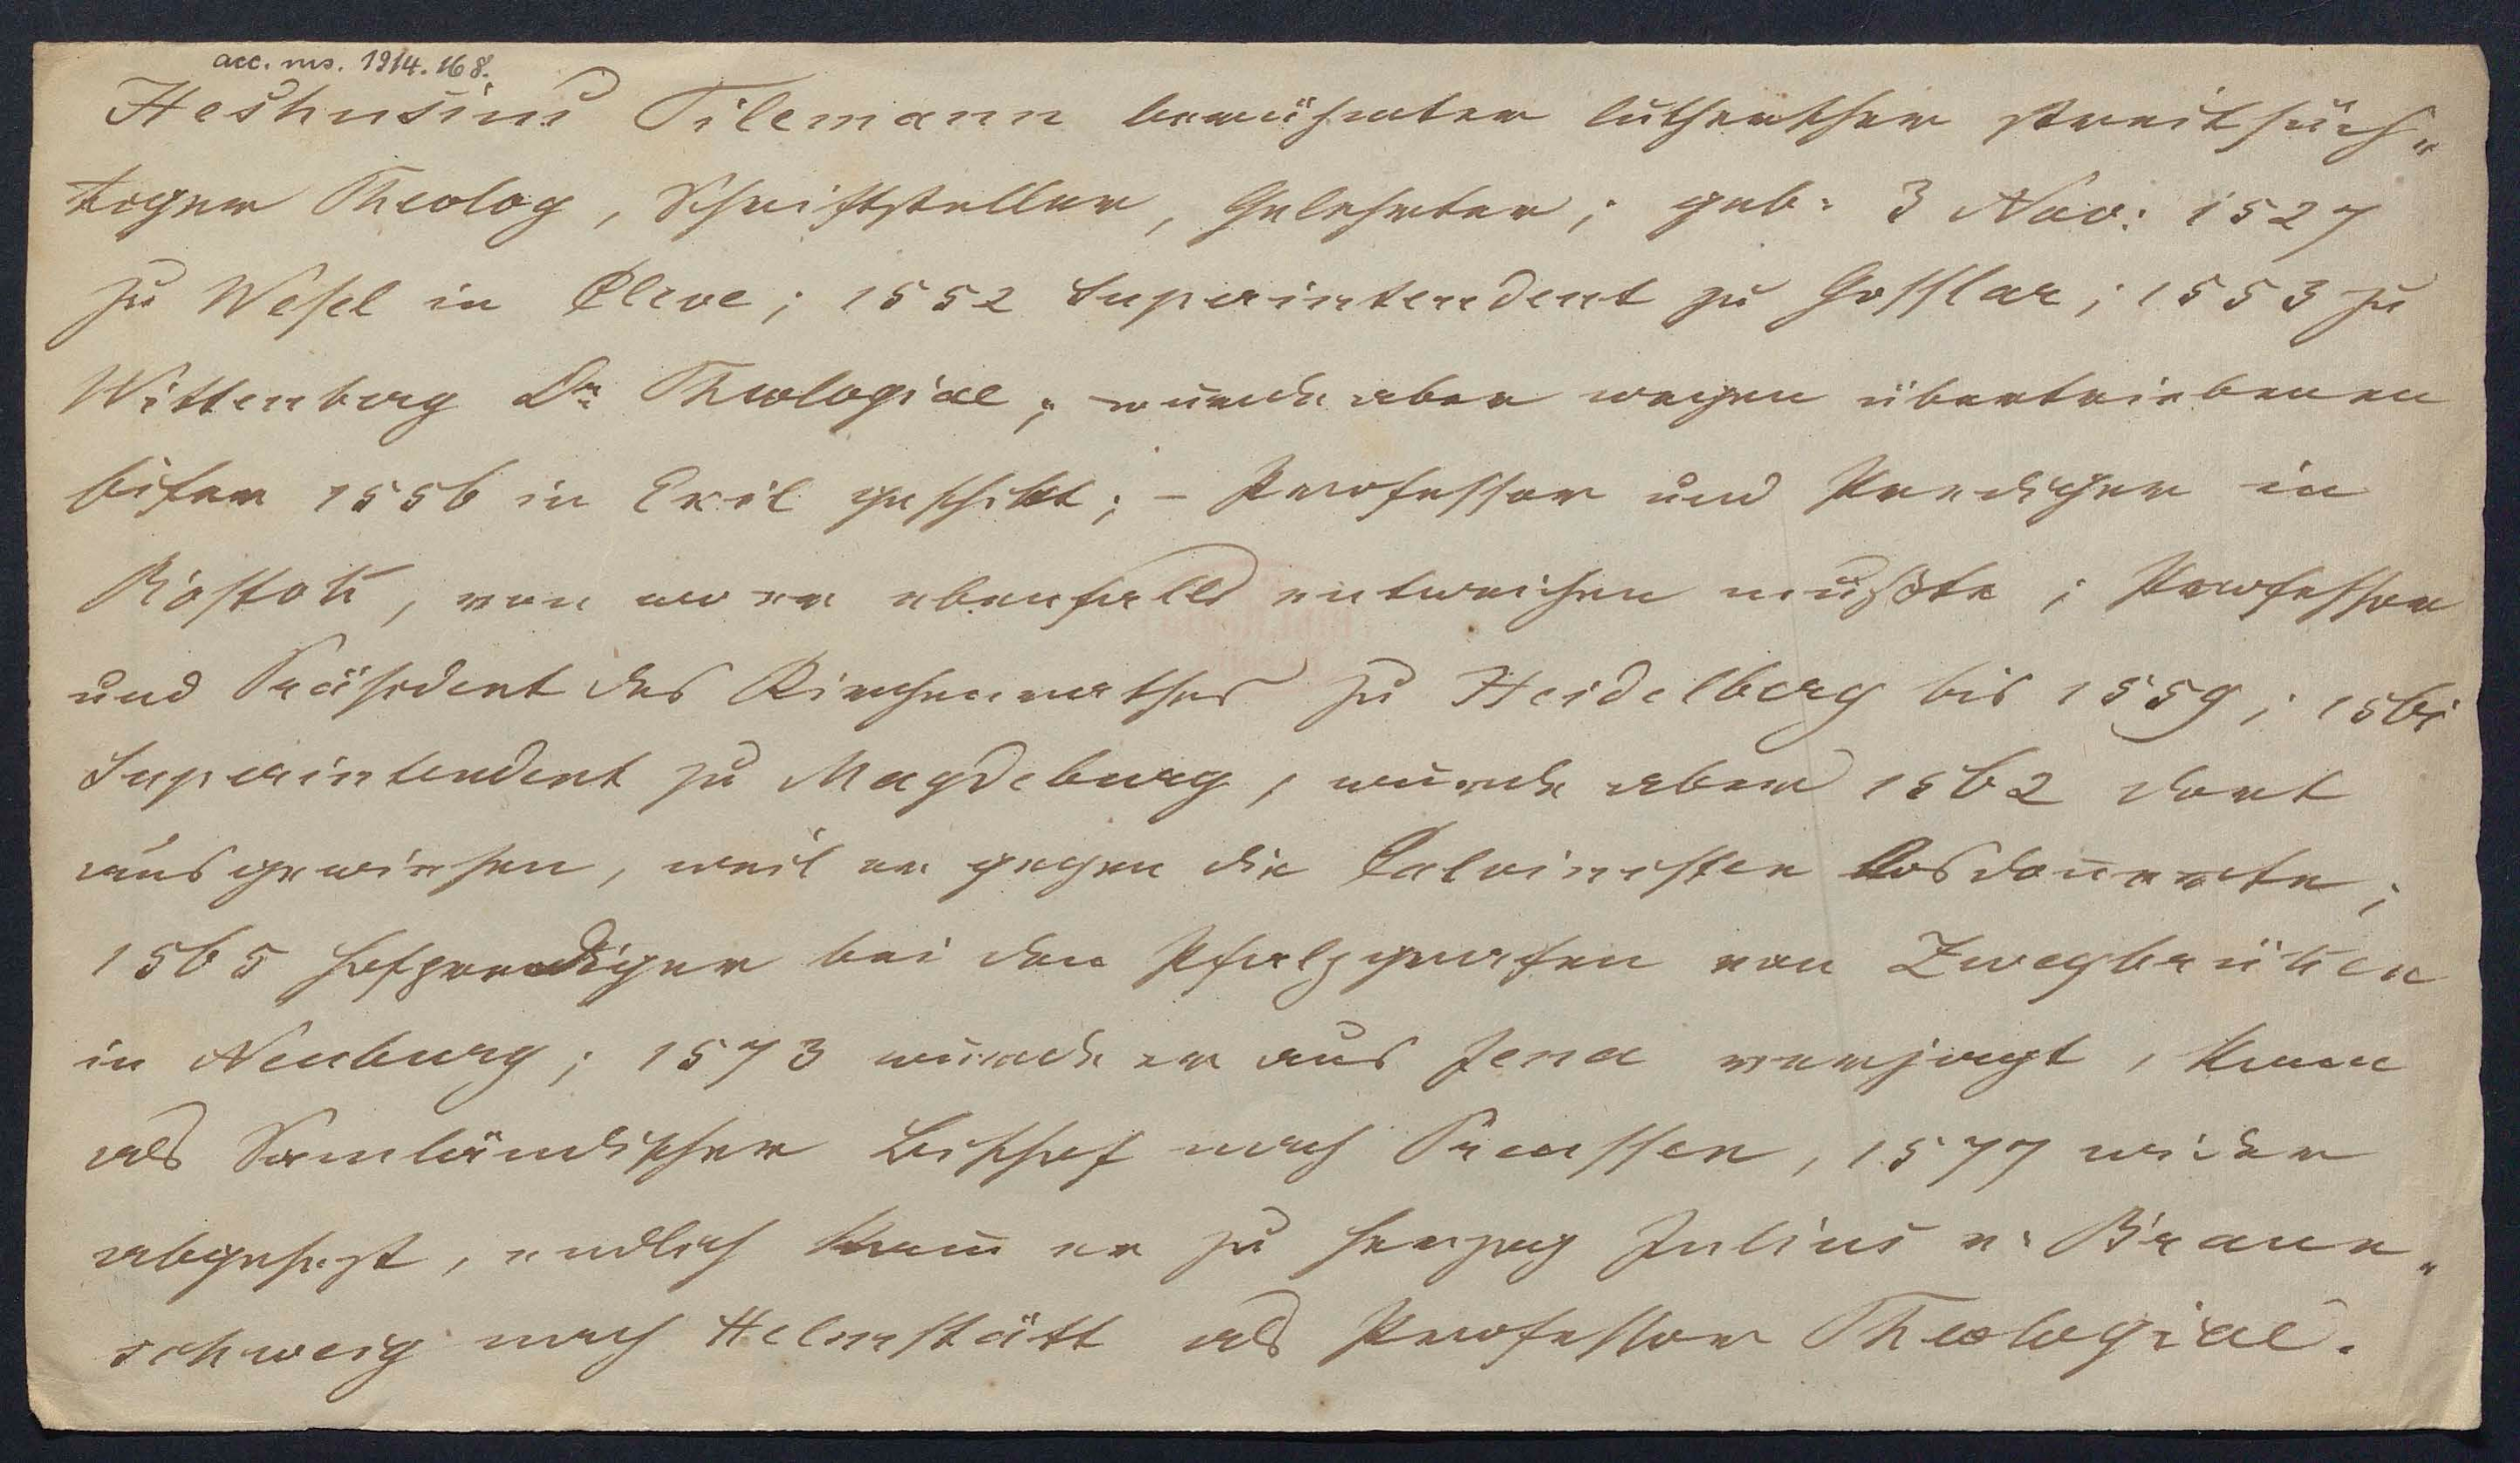 acc. ms. 1914. 168.
Heshusius Tilemann berühmter lutherscher streitsüch„
tiger Theolog, Schriftsteller, Gelehrter; geb: 3 Nov: 1527
zu Wesel in Cleve; 1552 Superintendent zu Gosslar; 1553 zu
Wittenberg Dr: Theologiae; wurde aber wegen übertriebenen
Eifer 1556 in Exil geschikt; – Professor und Prediger in
Rostok, von wo er ebenfalls entweichen mußte; Professor
und Präsident des Kirchenrathes zu Heidelberg bis 1559; 1561
Superintendent zu Magdeburg, wurde aber 1562 dort
ausgewiesen, weil er gegen die Calvinisten losdonnerte;
1565 Hofprediger bei den Pfalzgrafen von Zweybrüken
in Neuburg; 1573 wurde er aus Jena verjagt, kam
als Samländischer Bischof nach Preussen, 1577 wieder
abgesezt, endlich kam er zu Herzog Julius v: Braun„
schweig nach Helmstätt als Professor Theologiae.